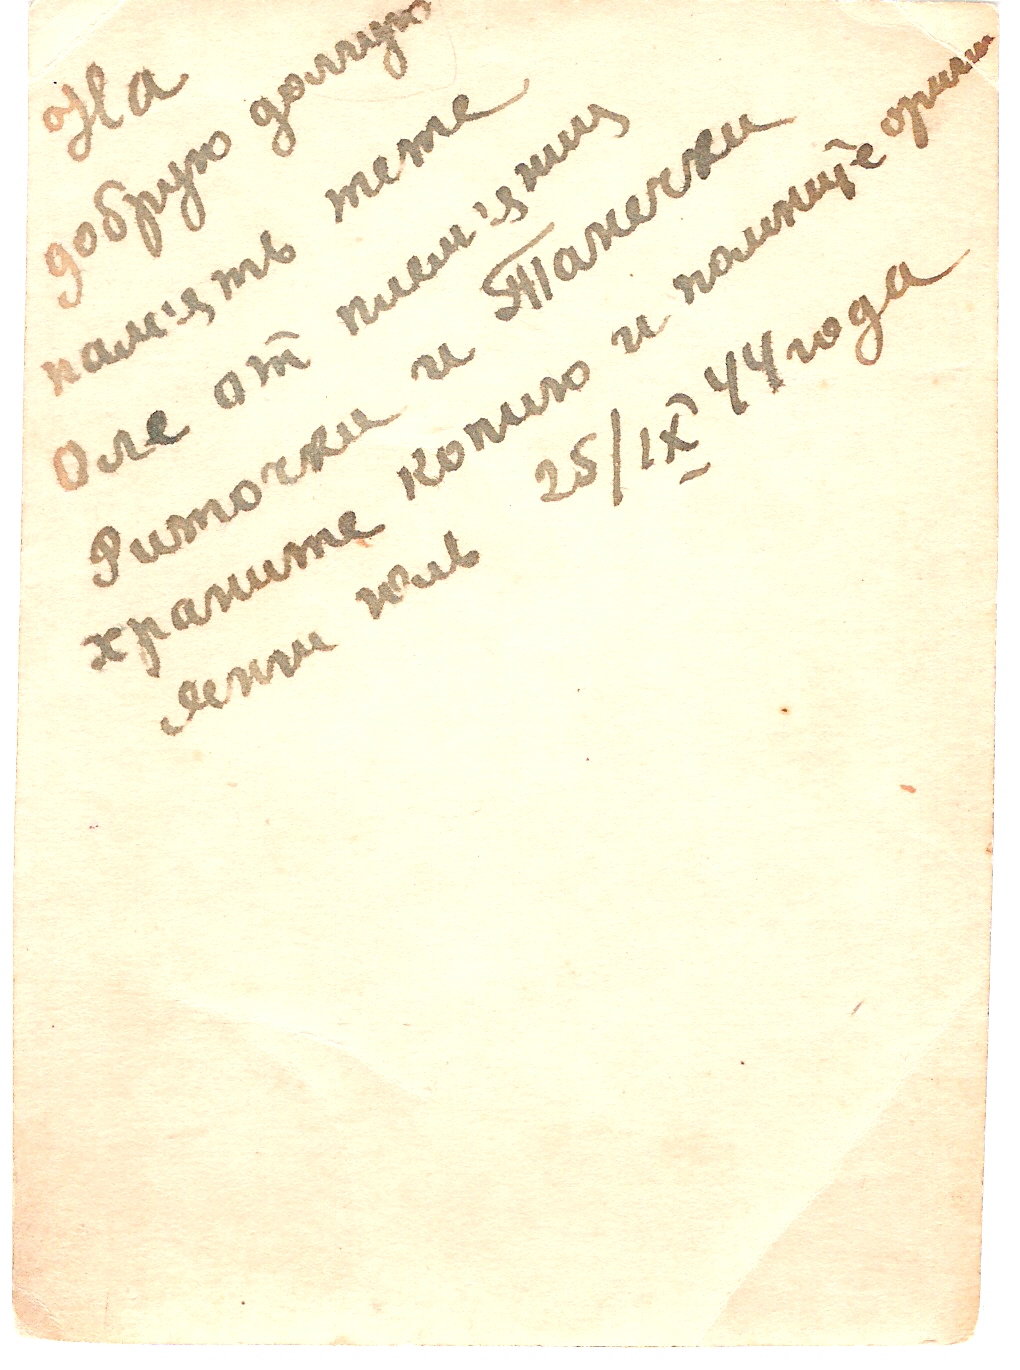 На
добрую долгую
пам'ять тете
Оле от плем'яниц
Риточки и Танечки
храните копию и помните
25/IX 44 года